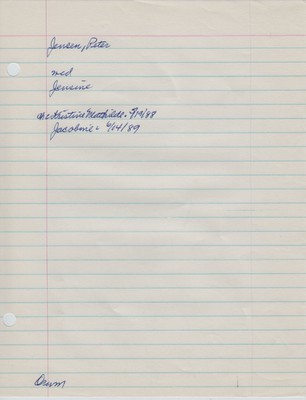 Jensen, Peter
med
Jensine
Kristine Mathilde - 9/19/88
Jacobine - 4/14/89
Drum